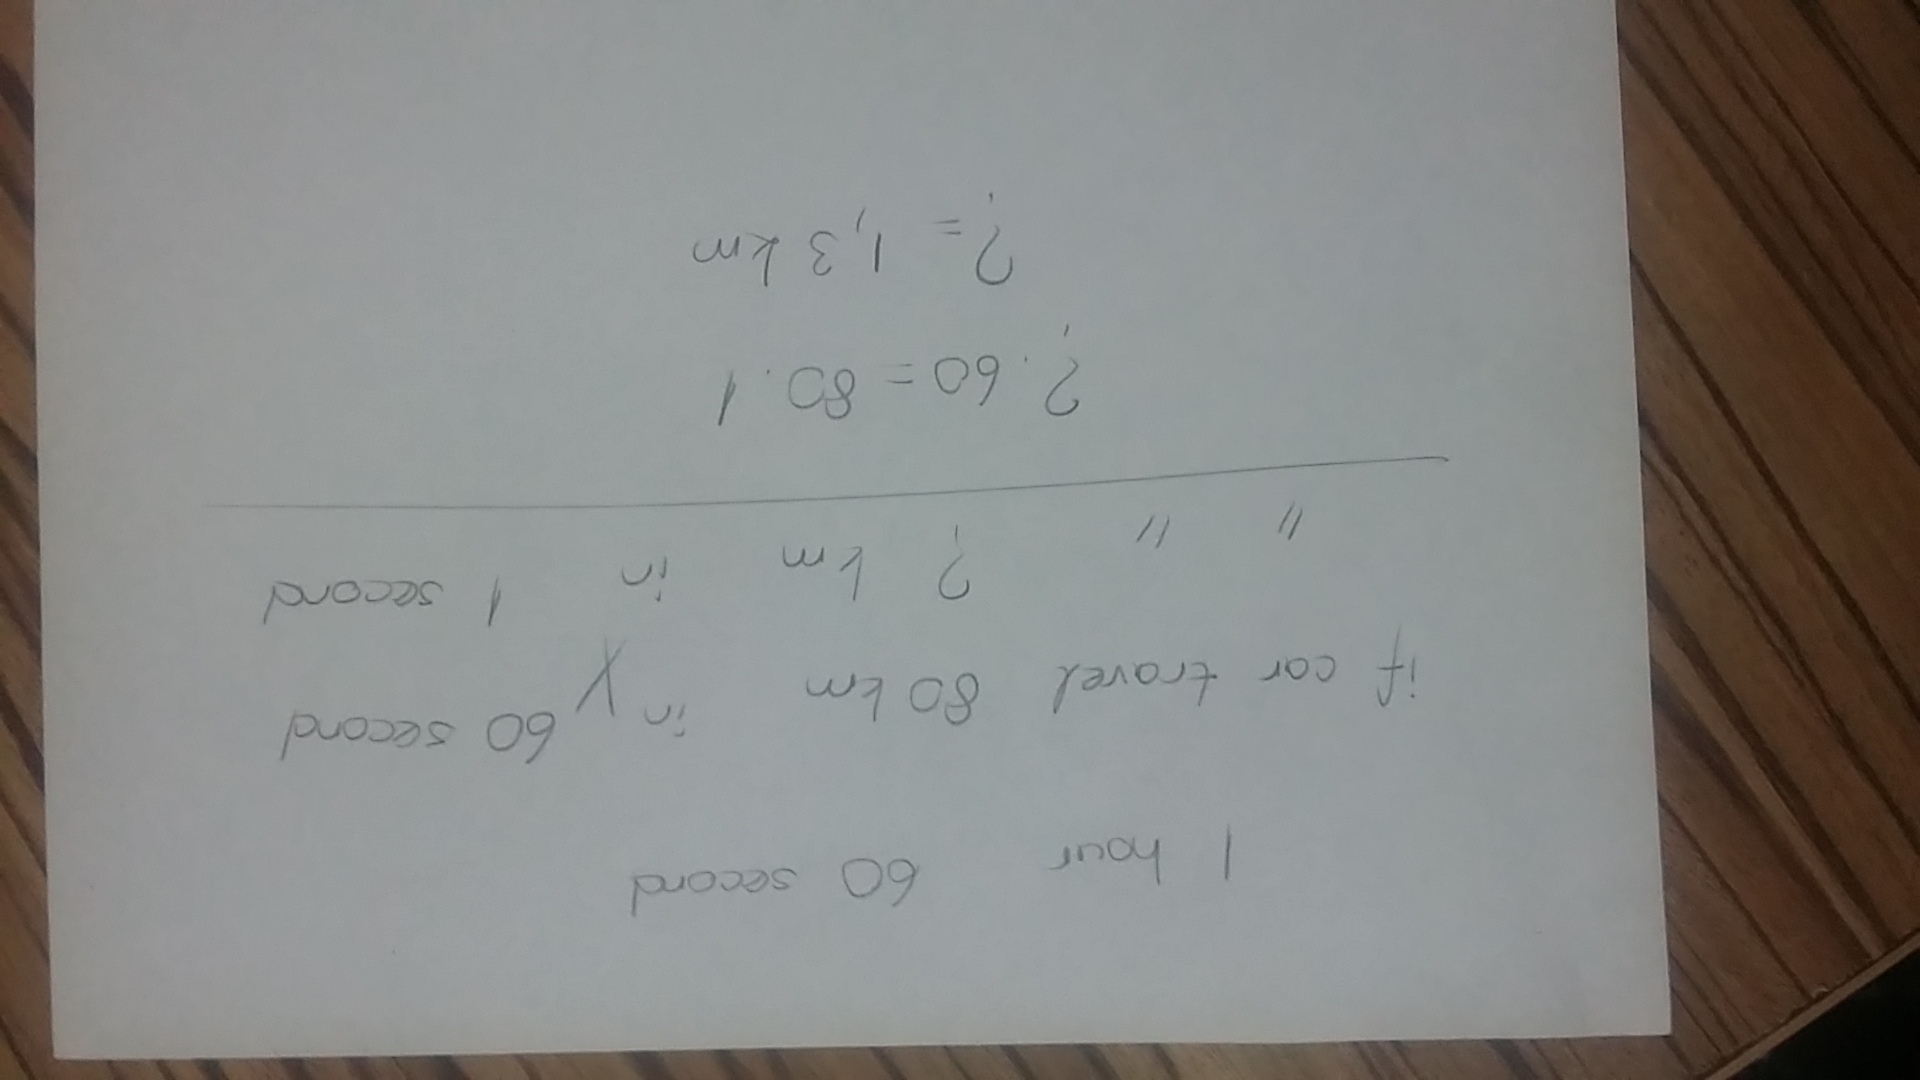 1 hour 60 second
if car travel 80 km in 60 second
" " ? km in 1 second
? . 60 = 80 . 1
? = 1,3 km